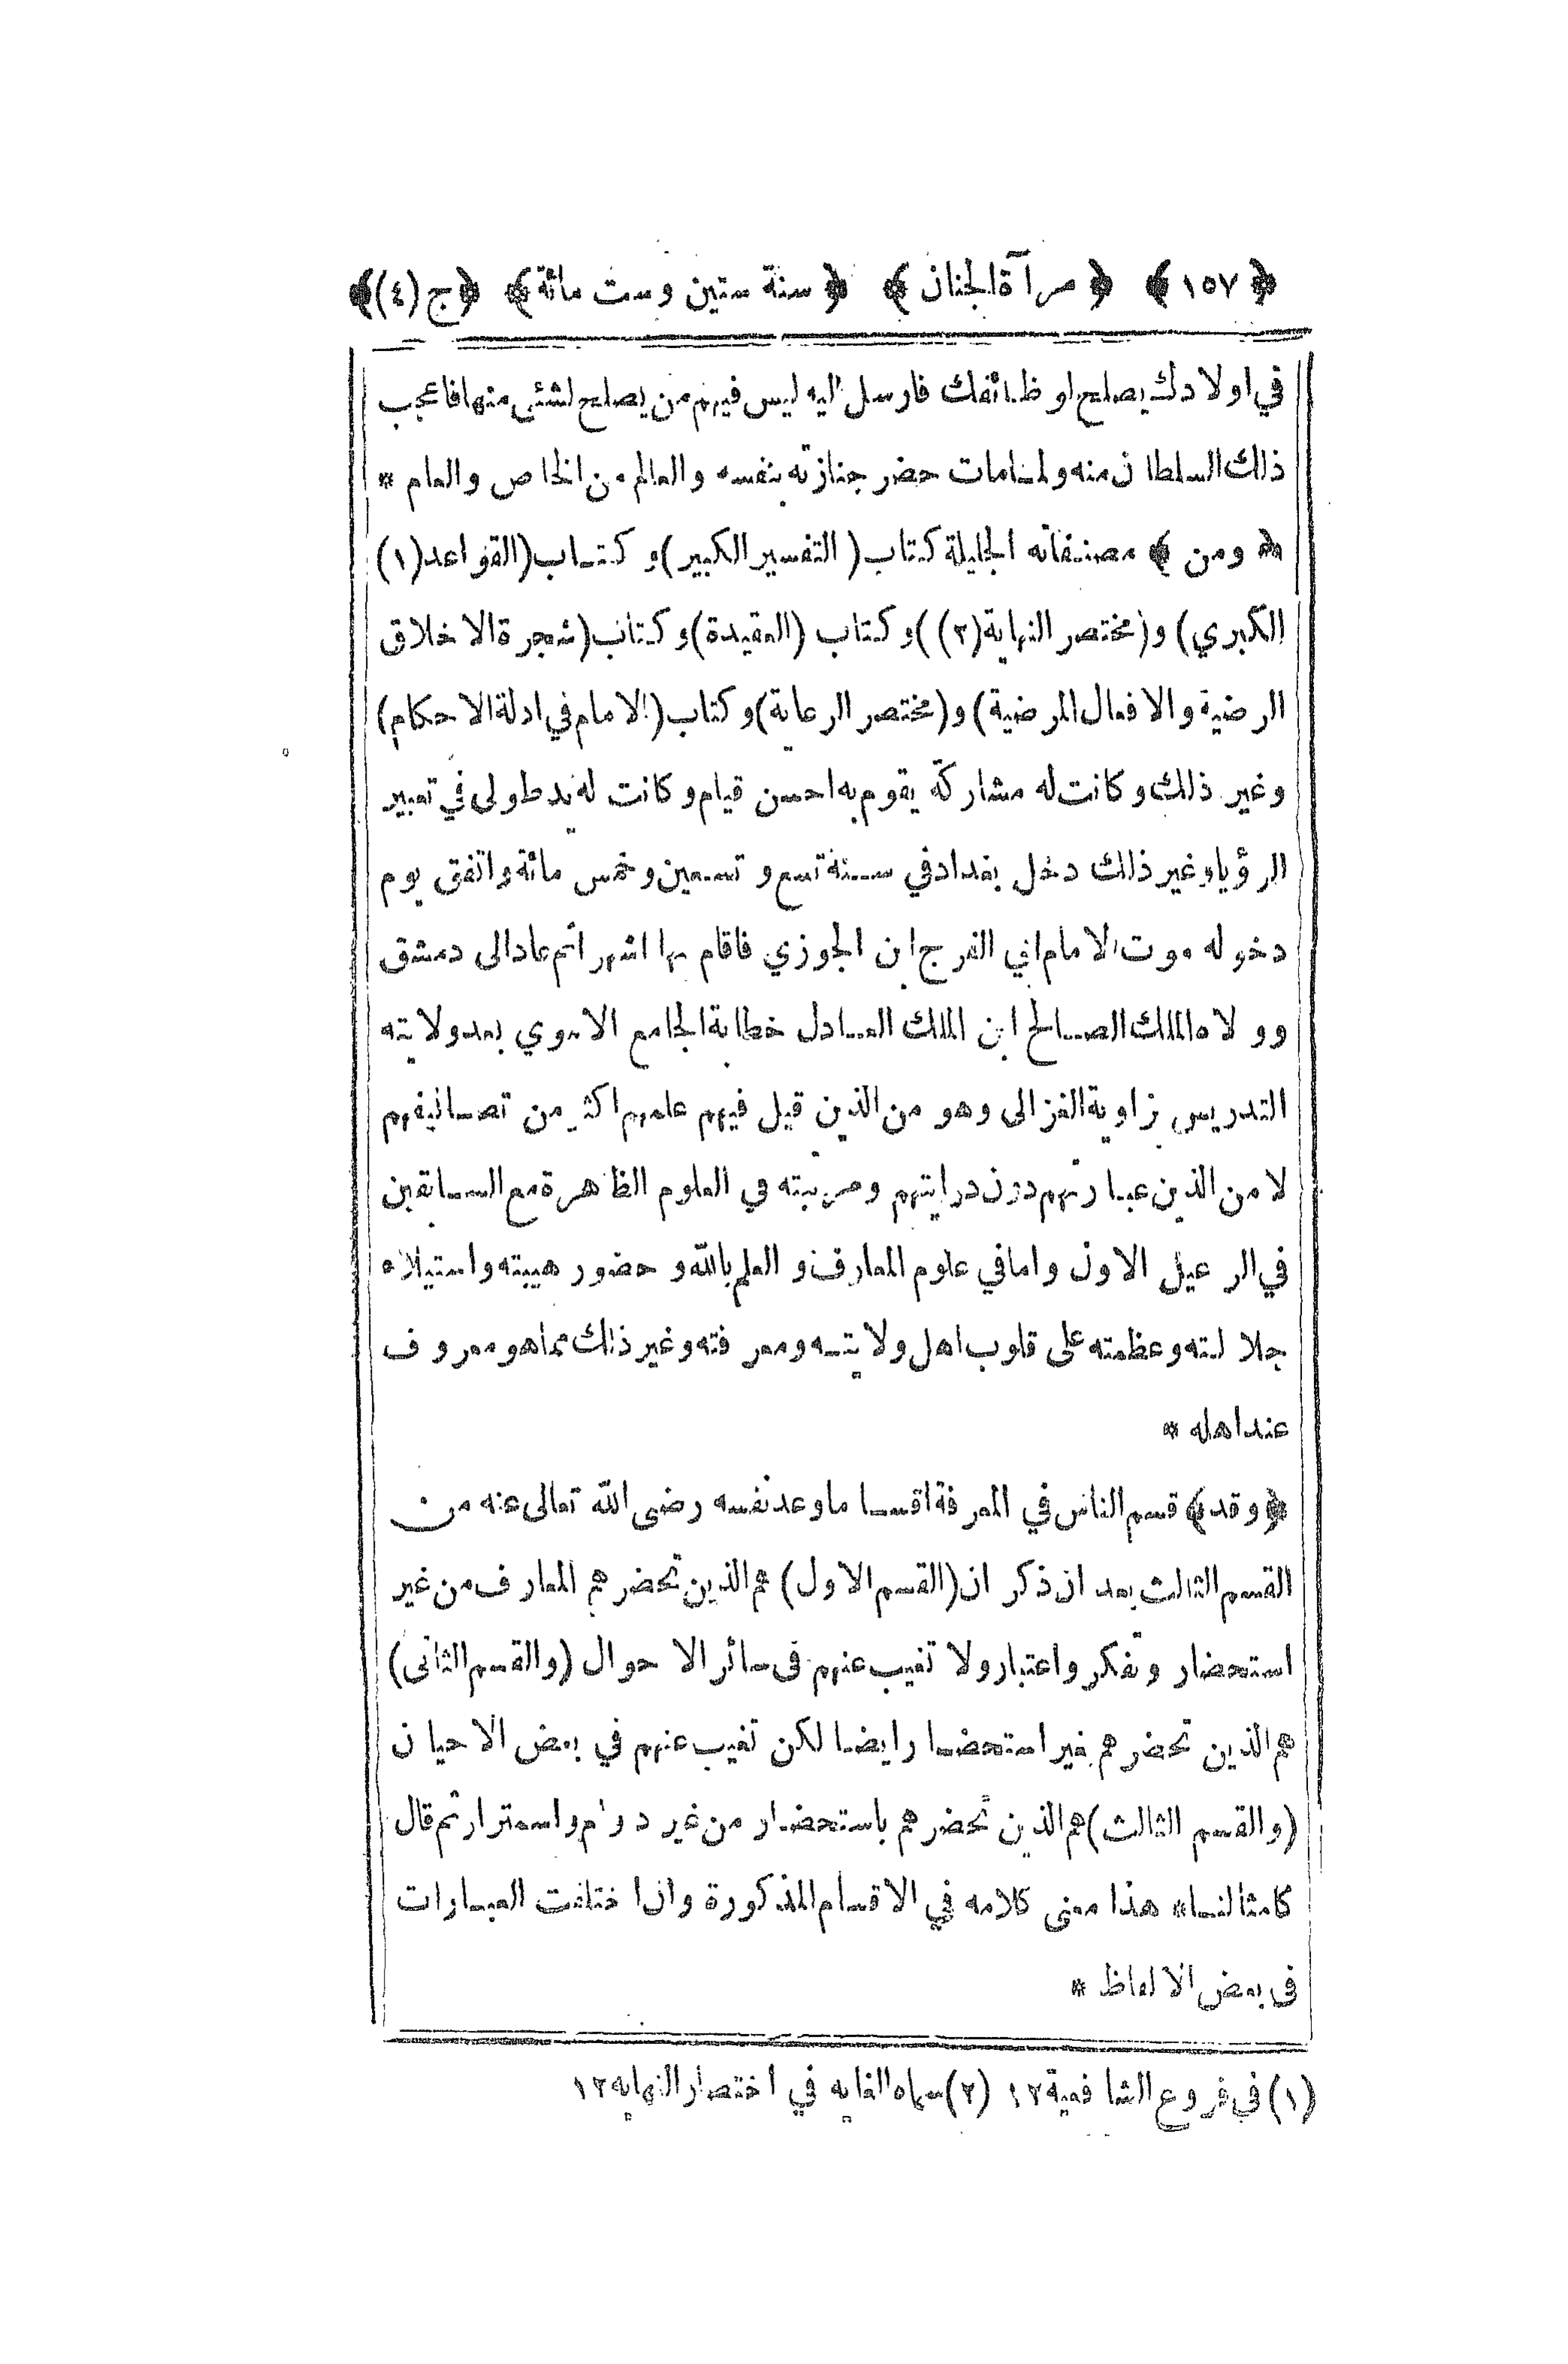 ﴿ ١٥٧ ﴾ ﴿ مرآة الجنان ﴾ ﴿ سنة ستين وست مائة ﴾ ﴿ ج (٤) ﴾
في اولادك يصلح لوظائفك فارسل اليه ليس فيهم من يصلح لشئى منها فاعجب
ذلك السلطان منه ولما مات حضر جنازته بنفسه والعالم من الخاص والعام *
﴿ ومن ﴾ مصنفاته الجليلة كتاب (التفسير الكبير) وكتاب (القواعد (١)
الكبرى) و(مختصر النهاية (٢)) وكتاب (العقيدة) وكتاب (شجرة الاخلاق
الرضية والافعال المرضية) و(مختصر الرعاية) وكتاب (الامام في ادلة الاحكام)
وغير ذلك وكانت له مشاركة يقوم به احسن قيام وكانت له يد طولى في تعبير
الرؤيا وغير ذلك دخل بغداد في سنة تسع وتسعين وخمس مائة واتفق يوم
دخوله موت الامام ابي الفرج ابن الجوزي فاقام بها اشهرا ثم عاد الى دمشق
وولاه الملك الصالح ابن الملك العادل خطابة الجامع الاموي بعد ولايته
التدريس بزاوية الغزالى وهو من الذين قيل فيهم علمهم اكثر من تصانيفهم
لا من الذين عبارتهم دون درايتهم ومرتبته في العلوم الظاهرة مع السابقين
في الرعيل الاول واما في علوم المعارف والعلم بالله وحضور هيبته واستيلاء
جلالته وعظمته على قلوب اهل ولايته ومعرفته وغير ذلك مما هو معروف
عند اهله *
﴿ وقد ﴾ قسم الناس في المعرفة اقساما وعد نفسه رضى الله تعالى عنه من
القسم الثالث بعد ان ذكر ان (القسم الاول) هم الذين تحضرهم المعارف من غير
استحضار وتفكر واعتبار ولا تغيب عنهم فى سائر الاحوال (والقسم الثانى)
هم الذين تحضرهم بغير استحضار ايضا لكن تغيب عنهم في بعض الاحيان
(والقسم الثالث) هم الذين تحضرهم باستحضار من غير دوام واستمرار ثم قال
كامثالنا * هذا معنى كلامه في الاقسام المذكورة وان اختلفت العبارات
فى بعض الالفاظ *
(١) في فروع الشافعية ١٢ (٢) سماه الغايه في اختصار النهايه ١٢